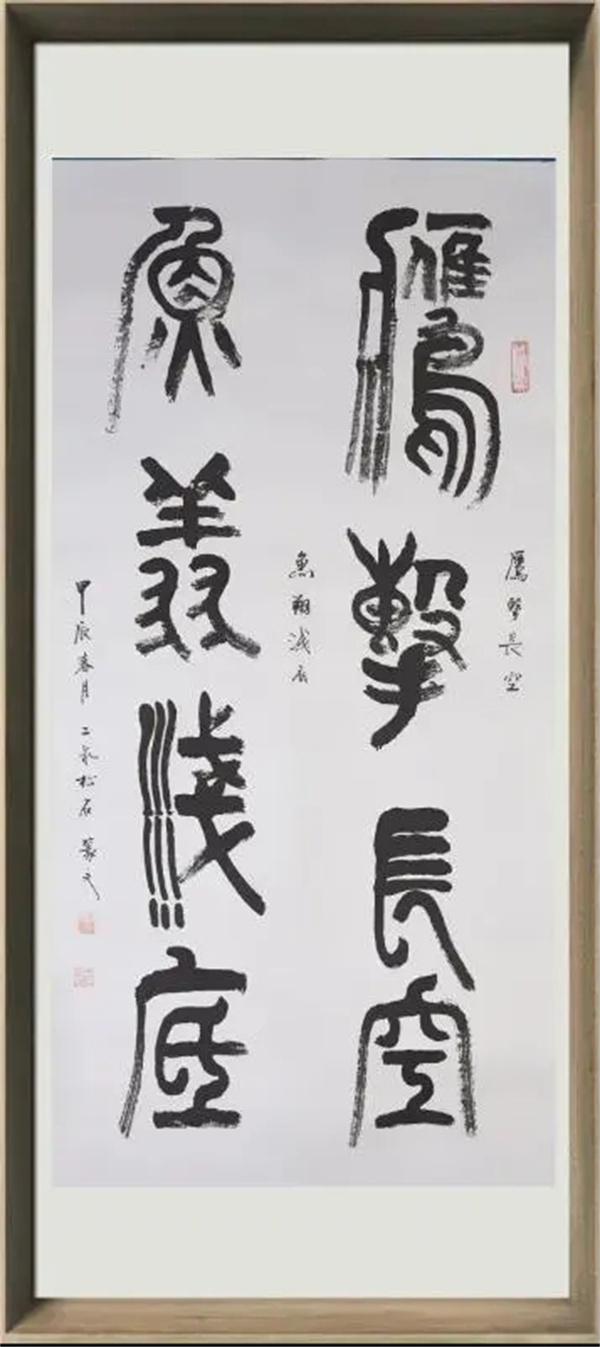 鷹擊長空
鷹擊長空
魚翔淺底
魚翔淺底
甲辰春月 松石篆之